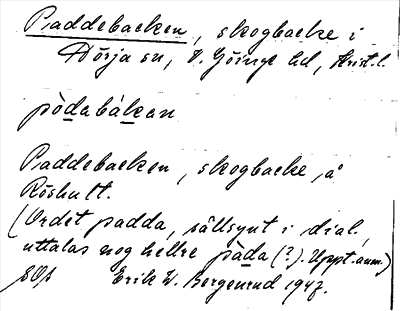 Paddebacken, skogbacke i
Nörja sn, V. Göinge hd, Krist. l.
pòdabàkan
Paddebacken, skogbacke, å
Röshult.
(Ordet padda, sällsynt i dial.,
uttalas nog hellre pàda (?). Uppt:s anm.)
Erik W. Bergenrud 1947.